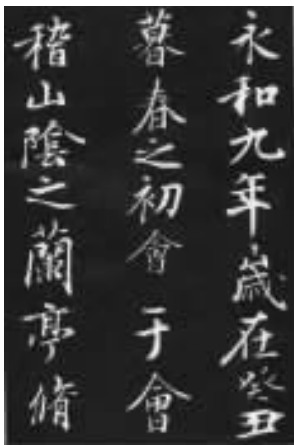 永和九年歲在癸丑
暮春之初會于會
稽山陰之蘭亭脩